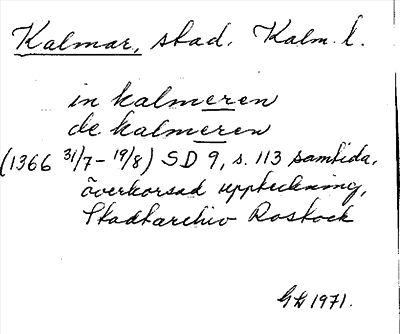 Kalmar, stad. Kalm. l.
in kalmeren
de kalmeren
(1366 31/7 – 19/8) SD 9, s. 113 samtida,
överkorsad uppteckning,
Stadtarchiv Rostock
1971.